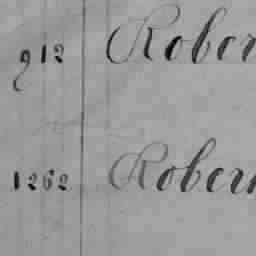 912 Rober
1262 Robern